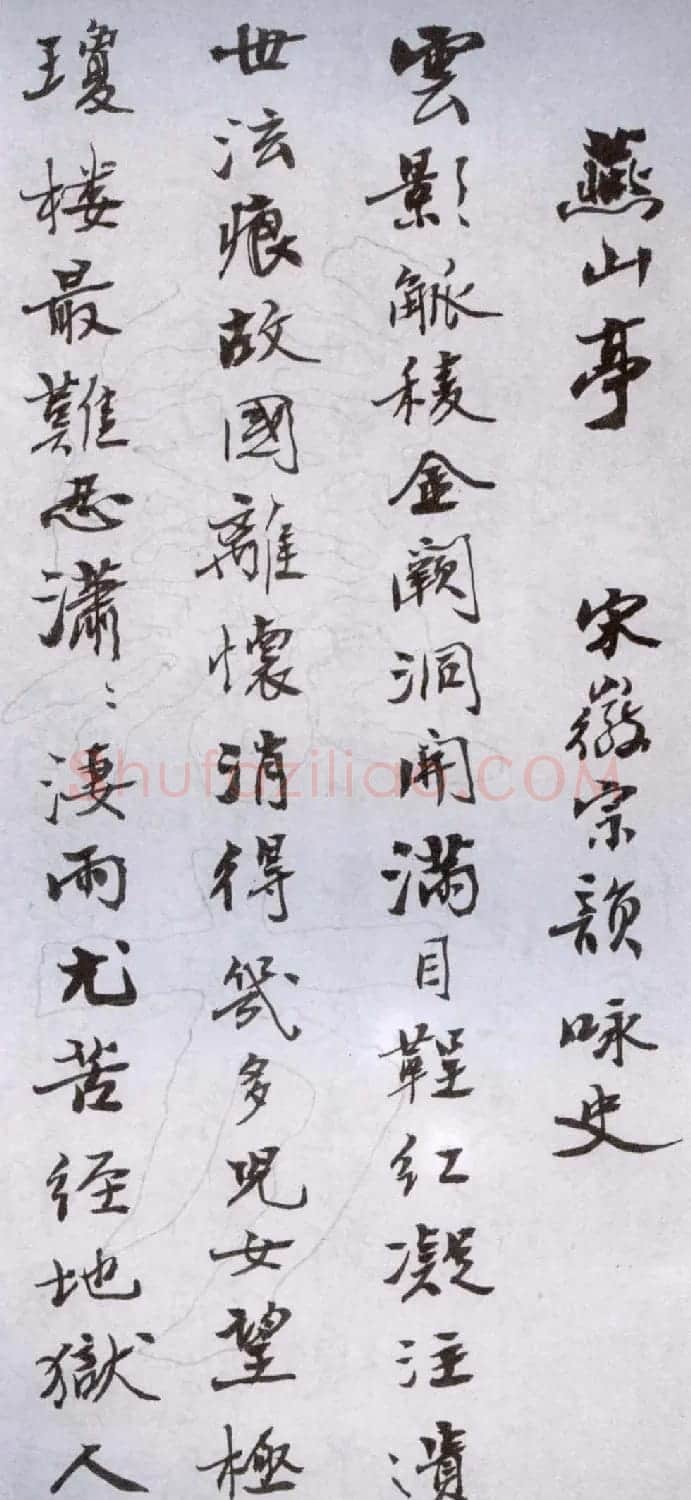 燕山亭 宋徽宗韻咏史
雲影觚稜金闕洞開滿目鞓紅凝注漬
世泫痕故國離懷消得幾多兒女望極
瓊楼最難忍瀟〻淒雨尤苦経地獄人
Shufaziliao.COM